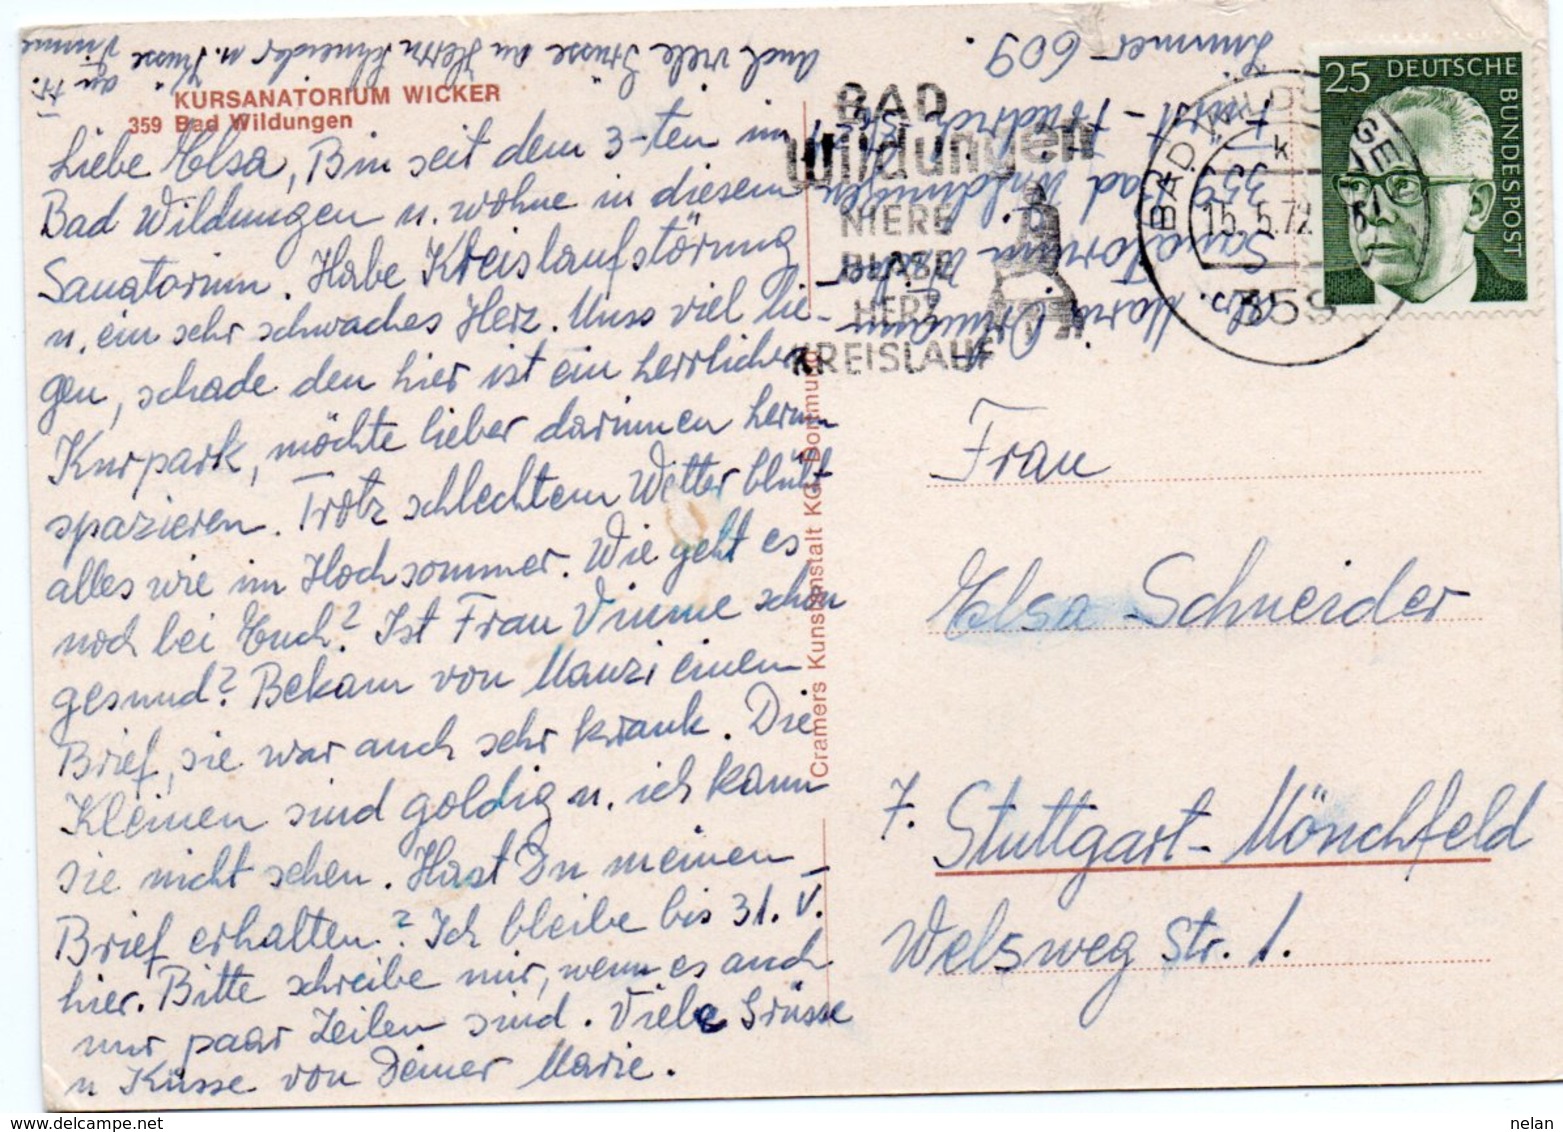 KURSANATORIUM WICKER
359 Bad Wildungen
Liebe Elsa, Bin seit dem 3-ten im
Bad Wildungen u. wohne in diesem
Sanatorium. Habe Kreislaufstörung
u. ein sehr schwaches Herz. Muss viel lie-
gen, schade den hier ist ein herrlicher
Kurpark, möchte lieber darinnen herum
spazieren. Trotz schlechtem Wetter blüht
alles wie im Hochsommer. Wie geht es
noch bei Euch? Ist Frau Vimme schon
gesund? Bekam von Manzi einen
Brief, sie war auch sehr krank. Die
Kleinen sind goldig u. ich kann
sie nicht sehen. Hast Du meinen
Brief erhalten? Ich bleibe bis 31. V.
hier. Bitte schreibe mir, wenn es auch
nur paar Zeilen sind. Viele Grüsse
u Küsse von Deiner Marie.
Auch viele Grüsse an Herrn Schneider u. Küsse
an Fr. Vimme
Cramers Kunstanstalt KG, Dortmund
Abs. Maria
Sanatorium Wicker
359 Bad Wildungen
Fürst-Friedrich
Zimmer 609.
BAD
Wildungen
NIERE
BLASE
HERZ
KREISLAUF
BAD WILDUNGEN
k
15.5.72
359
25 DEUTSCHE
BUNDESPOST
Frau
Elsa Schneider
7. Stuttgart-Mönchfeld
Welsweg Str. 1.
www.delcampe.net
nelan